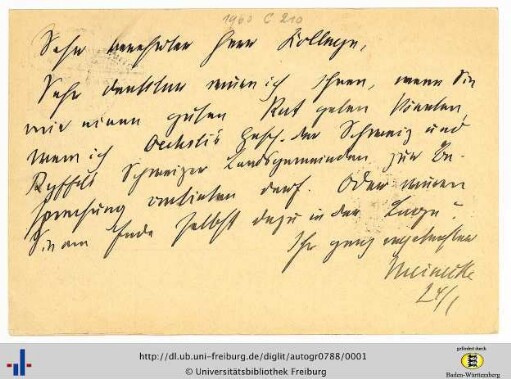 1960 C 210
Sehr verehrter Herr Kollege,
Sehr dankbar wäre ich Ihnen, wenn Sie
mir einen guten Rat geben könnten,
wem ich Oechslis Gesch. der Schweiz und
Ryffels Schweizer Landsgemeinden zur Be-
sprechung anbieten darf. Oder wären
Sie am Ende selbst dazu in der Lage?
Ihr ganz ergebenster
Meinecke
24/1
http://dl.ub.uni-freiburg.de/diglit/autogr0788/0001
© Universitätsbibliothek Freiburg
gefördert durch
Baden-Württemberg